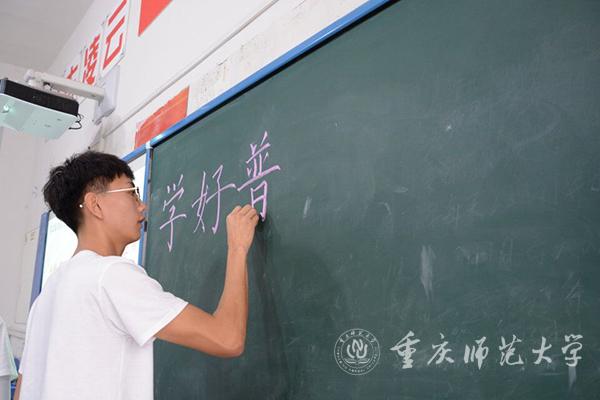 凌云
学好普
重庆师范大学